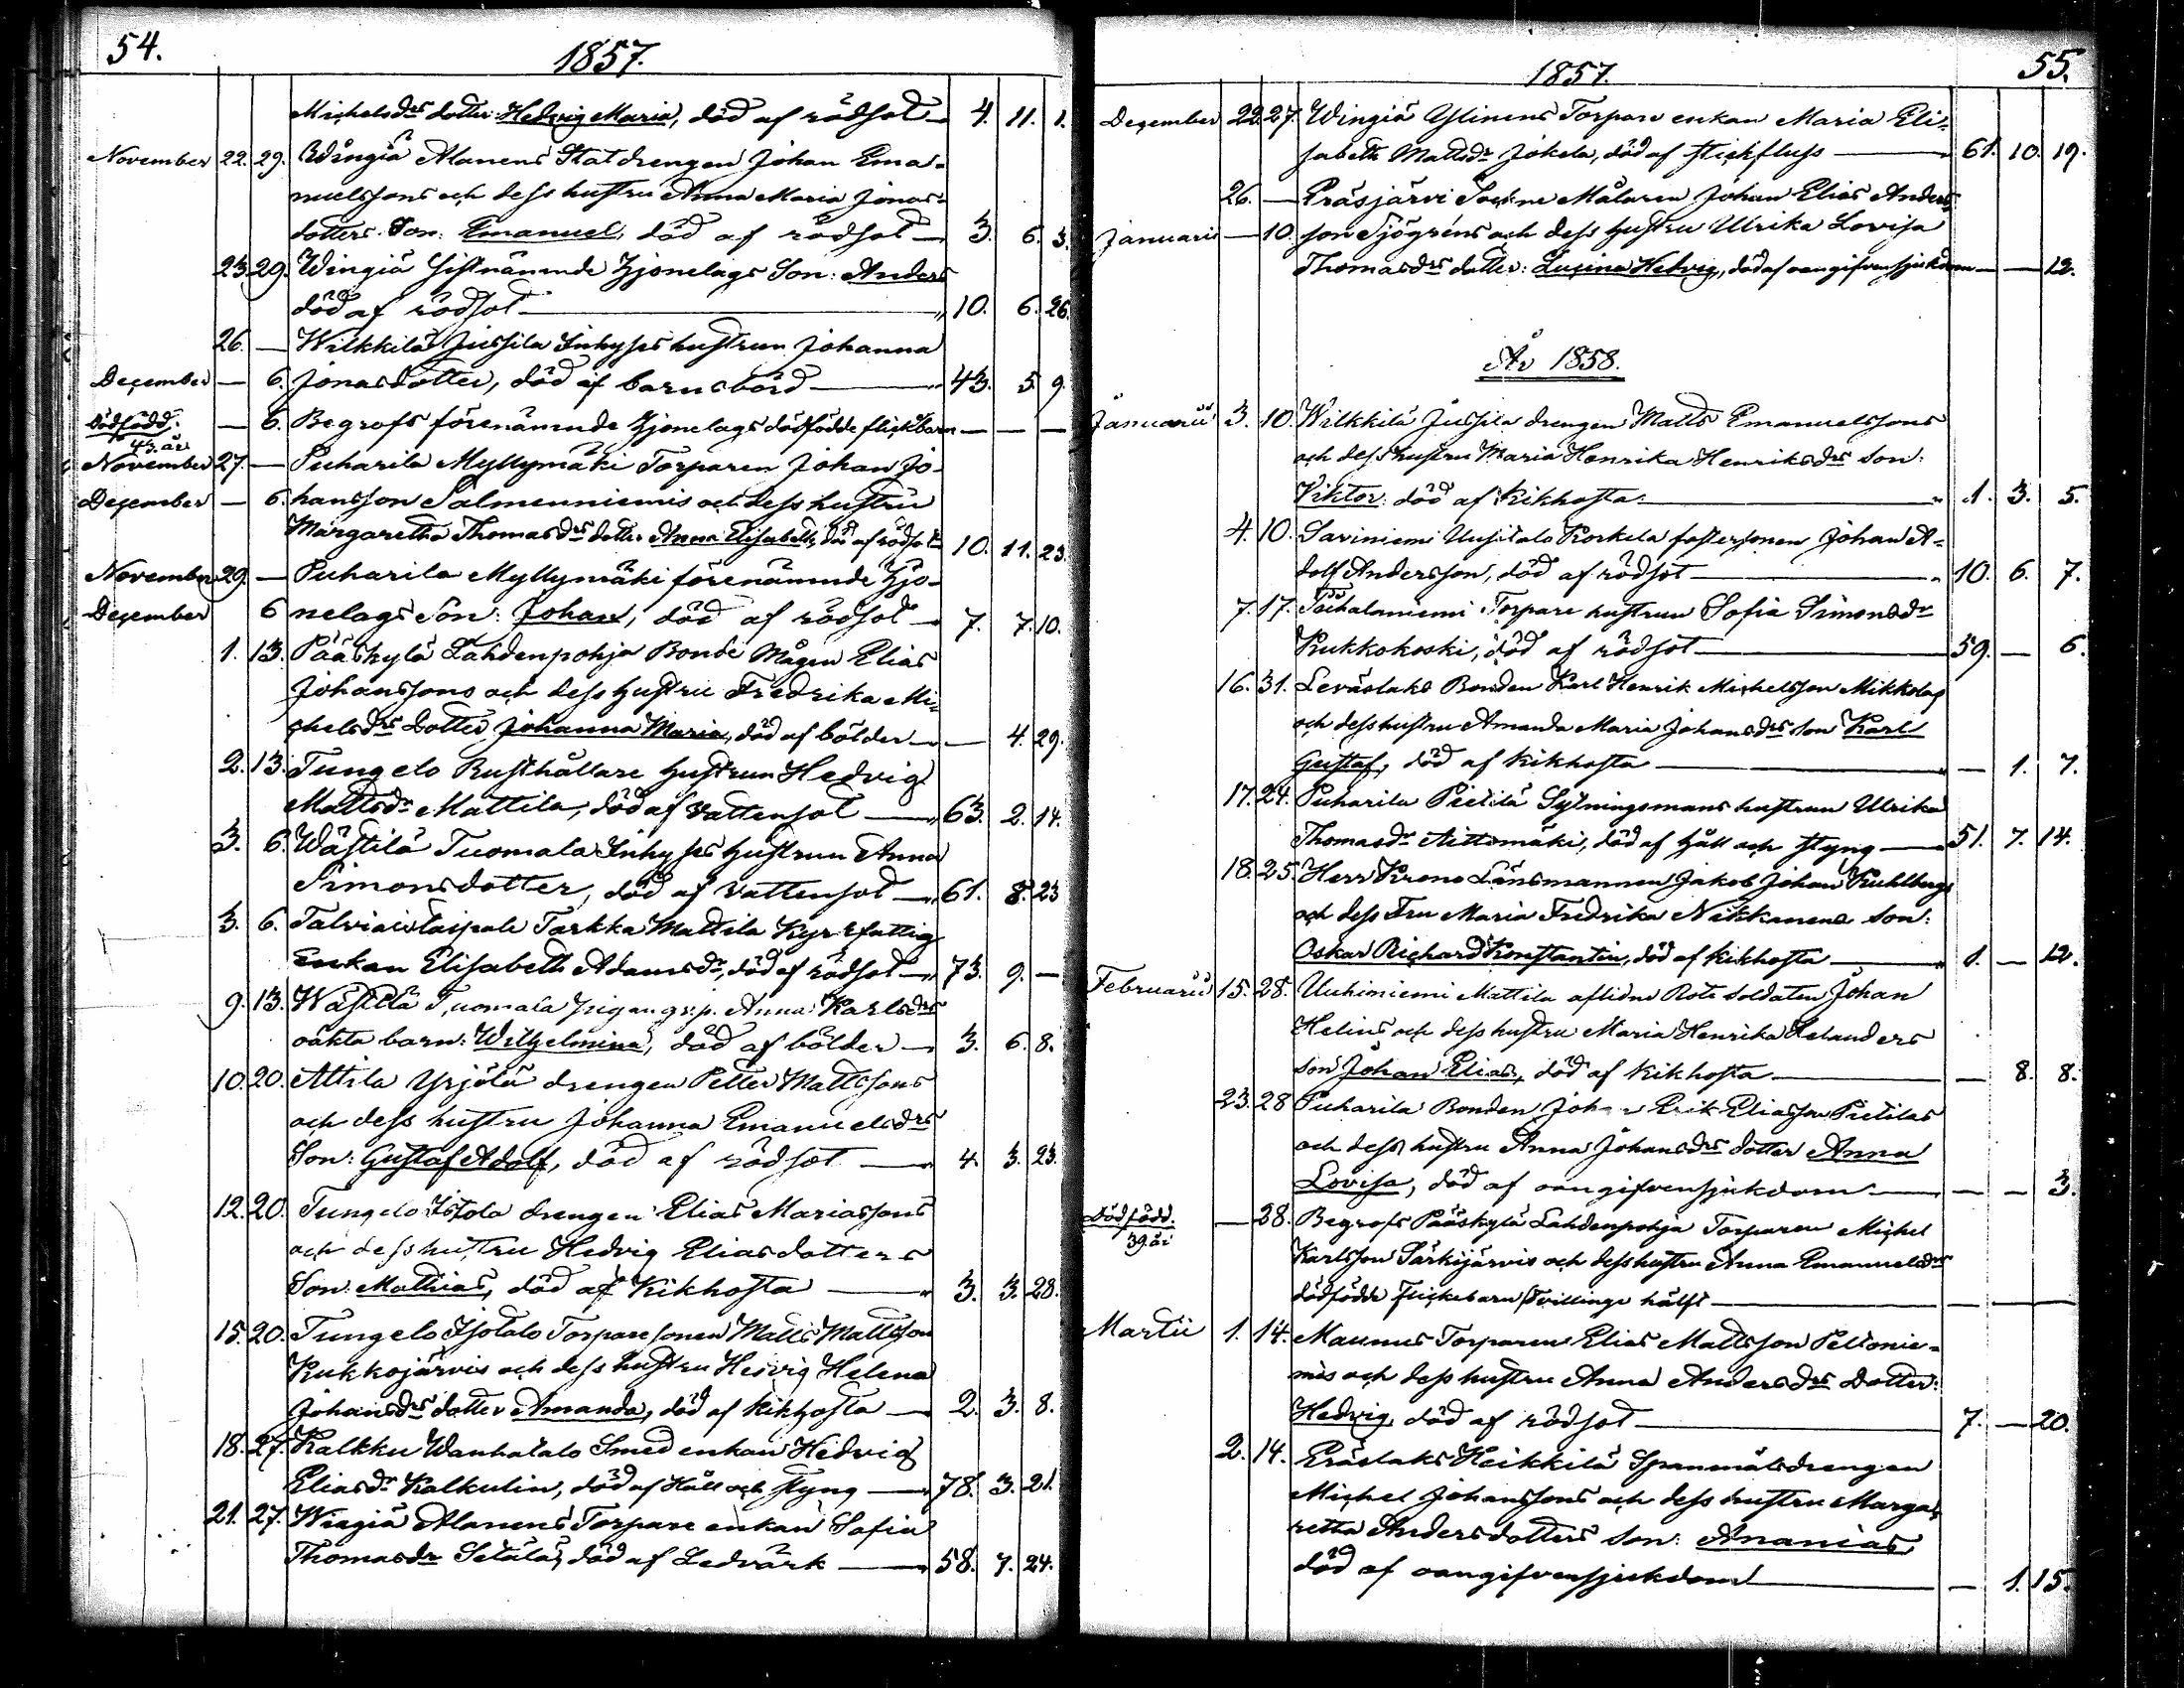 54.
1857.
Michelsdrs dotter Hedvig Maria, död af rödsot 4. 11. 1.
November 22. 29. Wingiä Alanens Statdrengen Johan Ema-
nuelssons och dess hustru Anna Maria Jonas-
dotters Son: Emanuel, död af rödsot 3. 6. 3.
23. 29. Wingiä sistnämnde Hjonelags Son: Anders
död af rödsot 10. 6. 26.
26. — Wilkkilä Jussila Inhyses hustrun Johanna
December — 6. Jonasdotter, död af barnsbörd 43. 5. 9.
Dödfödd. — 6. Begrofs förenämnde Hjonelags dödfödde flickbarn — — —
43. år
November 27. — Puharila Myllymäki Torparen Johan Jo-
December — 6. hansson Salmenniemis och dess hustru
Margaretha Thomasdrs dotter Anna Elisabeth, död af rödsot 10. 11. 23.
November 29. — Puharila Myllymäki förenämnde Hjo-
December 6 nelags Son: Johan, död af rödsot 7. 7. 10.
1. 13. Pääskylä Lahdenpohja Bonde Mågen Elias
Johanssons och dess hustru Fredrika Mi-
chelsdrs Dotter Johanna Maria, död af bölder — 4. 29.
2. 13. Tungelo Rusthållare hustrun Hedvig
Mattsdr Mattila, död af vattensot 63. 2. 14.
3. 6. Wästilä Tuomala Inhyses hustrun Anna
Simonsdotter, död af Vattensot 61. 8. 23
3. 6. Tarkka Mattila Kyrkfattig
Enkan Elisabeth Adamsdr, död af rödsot 73. 9. —
9. 13. Wästilä Tuomala Anna Karlsdrs
oäkta barn: Wilhelmina, död af bölder 3. 6. 8.
10. 20. Attila Yrjölä drengen Petter Mattssons
och dess hustru Johanna Emanuelsdrs
Son: Gustaf Adolf, död af rödsot 4. 3. 23.
12. 20. Tungelo Istola drengen Elias Mariassons
och dess hustru Hedvig Eliasdotters
Son: Mathias, död af Kikhosta 3. 3. 28.
15. 20. Tungelo Isotalo Torpare sonen Matts Mattsson
Kukkojärvis och dess hustru Hedvig Helena
Johansdrs dotter Amanda, död af Kikhosta 2. 3. 8.
18. 27. Kalkku Wanhatalo Smed enkan Hedvig
Eliasdr Kalkulin, död af Håll och styng 78. 3. 21.
21. 27. Wingiä Alanens Torpare enkan Sofia
Thomasdr Setälä, död af Ledvärk 58. 7. 24.
55.
1857.
December 22. 27. Wingiä Ylinens Torpare enkan Maria Eli-
sabeth Mattsdr Jokela, död af stickfluss 61. 10. 19.
26. — Eräsjärvi Sockne Målaren Johan Elias Anders-
Januarii — 10. son Sjögréns och dess hustru Ulrika Lovisa
Thomasdrs dotter: Lucina Hedvig, död af oangifven sjukdom — — 12.
År 1858.
Januarii 3. 10. Wilkkilä Jussila drengen Matts Emanuelssons
och dess hustru Maria Henrika Henriksdrs son:
Viktor: död af Kikhosta. 1. 3. 5.
4. 10. Saviniemi Uusitalo Korkela fostersonen Johan A-
dolf Andersson, död af rödsot 10. 6. 7.
7. 17. Torpare hustrun Sofia Simonsdr
Kukkokoski, död af rödsot 59. — 6.
16. 31. Leväslaks Bonden Karl Henrik Michelsson Mikkolas
och dess hustru Amanda Maria Johansdrs son Karl
Gustaf, död af Kikhosta — 1. 7.
17. 24. Puharila Pietilä Sytningsmans hustrun Ulrika
Thomasdr Aittomäki, död af håll och styng 51. 7. 14.
18. 25. Herr Krono Länsmannen Jakob Johan Kuhlbergs
och dess Fru Maria Fredrika Nikkanens son:
Oskar Richard Konstantin, död af kikhosta 1. — 12.
Februarii 15. 28. Uuhiniemi Mattila aflidne Rote soldaten Johan
Helins och dess hustru Maria Henrika Helanders
son Johan Elias, död af Kikhosta — 8. 8.
23. 28 Puharila Bonden Johan Erik Eliasson Pietilas
och dess hustru Anna Johansdrs dotter Anna
Lovisa, död af oangifven sjukdom — — 3.
Dödfödd. — 28. Begrofs Pääskylä Lahdenpohja Torparen Michel
39. år
Karlsson Särkijärvis och dess hustru Anna Emanuelsdrs
dödfödde flickebarn Tvillings hälft — — —
Martii 1. 14. Maunus Torparens Elias Mattsson Peltonie-
mis och dess hustru Anna Andersdrs Dotter:
Hedvig död af rödsot 7. — 20.
2. 14. Eräslaks Heikkilä Spanmålsdrengen
Michel Johanssons och dess hustru Marga-
retta Andersdotters son: Ananias
död af oangifven sjukdom — 1. 15.